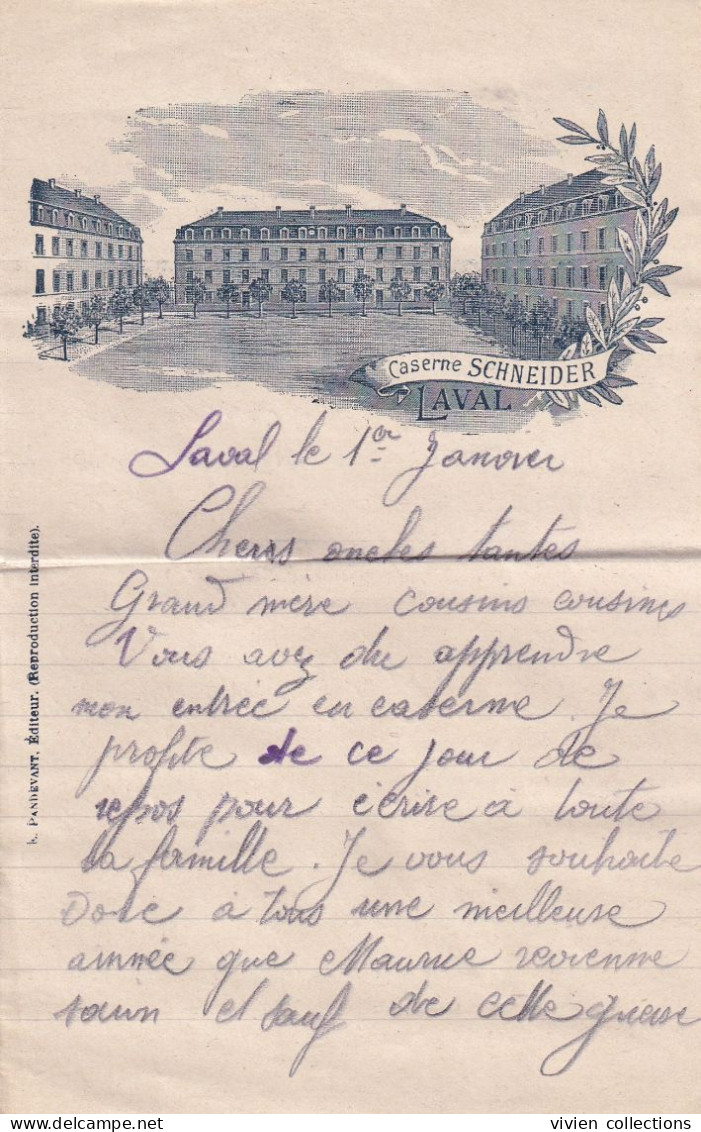 Caserne SCHNEIDER
LAVAL
Laval le 1er Janvier
Chers oncles tantes
Grand mère cousins cousines
Vous avez du apprendre
mon entrée en caserne. Je
profite de ce jour de
repos pour écrire à toute
la famille. Je vous souhaite
Donc à tous une meilleure
année que Maurice revienne
sain et sauf de cette guerre
PANDEVANT. Éditeur. (Reproduction interdite).
vivien collections